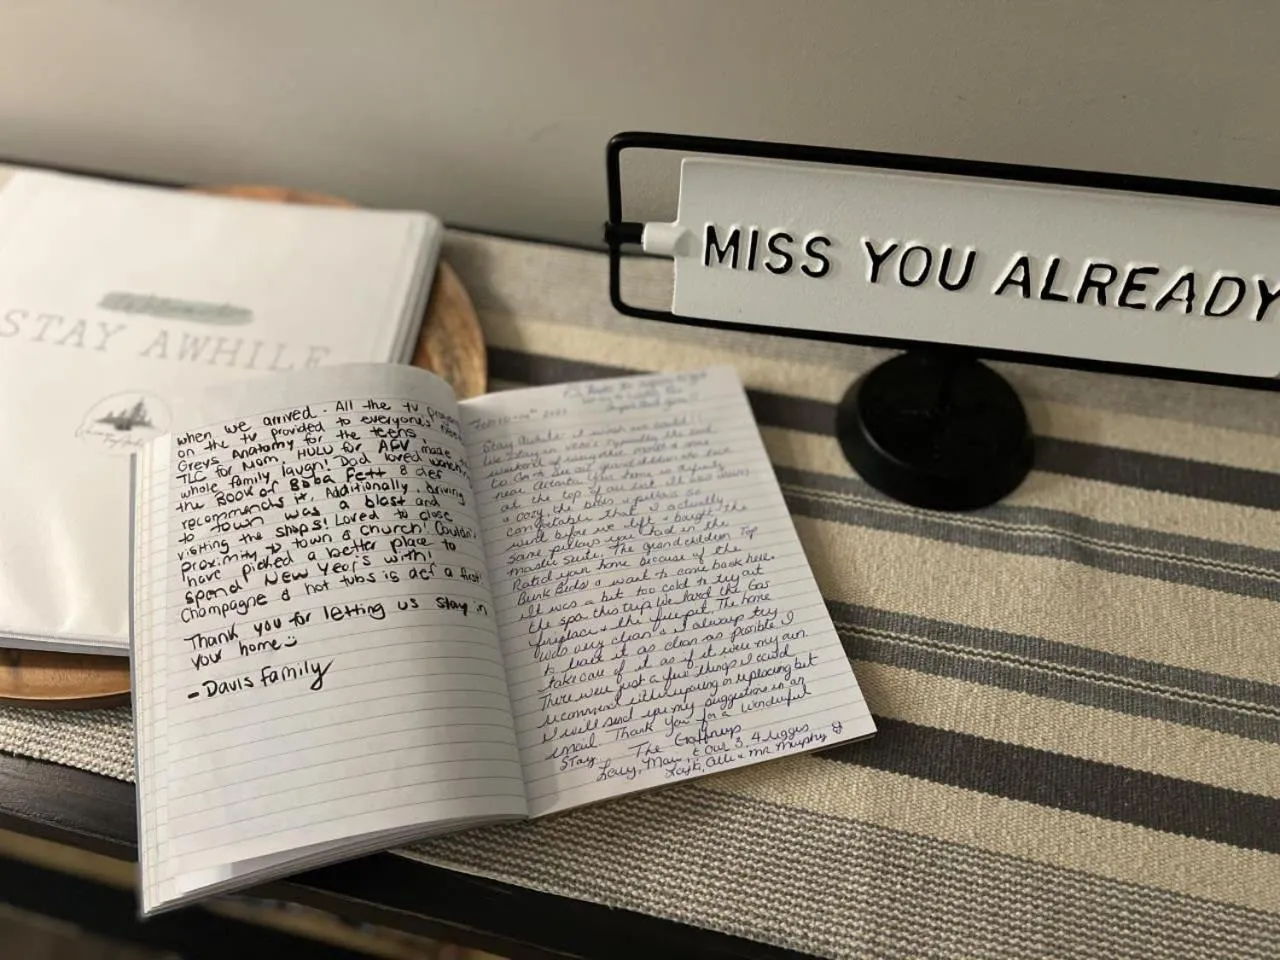 STAY AWHILE
MISS YOU ALREADY
when we arrived. All the tv
on the tv provided to everyone's
Greys Anatomy for the teens,
TLC for Mom, HULU for AFV made
whole family laugh! Dad loved
the Book of Boba Fett & def
recommends it. Additionally, driving
to town was a blast and
visiting the shops! Loved to close
proximity to town & church! Couldn't
have picked a better place to
spend New Year's with!
Champagne & hot tubs is def a first!
Thank you for letting us stay in
your home
- Davis Family
Stay Awhile: I wish we could!!
We stay in
weekend of every other month & come
to GA to see our grandchildren who live
near Atlanta. Your home is
at the top of our list. It was
& cozy the beds & pillows so
comfortable that I actually
went before we left & bought the
same pillows you had in the
master suite. The grandchildren Top
Rated your home because of the
Bunk Beds & want to come back here.
It was a bit too cold to try out
the spa this trip. We loved the Gas
fireplace & the fire pit. The home
was very clean & I always try
to leave it as clean as possible. I
take care of it as if it were my own.
There were just a few things I could
recommend either or replacing but
I will send you my suggestions in an
email. Thank You for a Wonderful
Stay. The Gaffneys
Mary & Our 3, 4 leggers
& Mr. Murphy